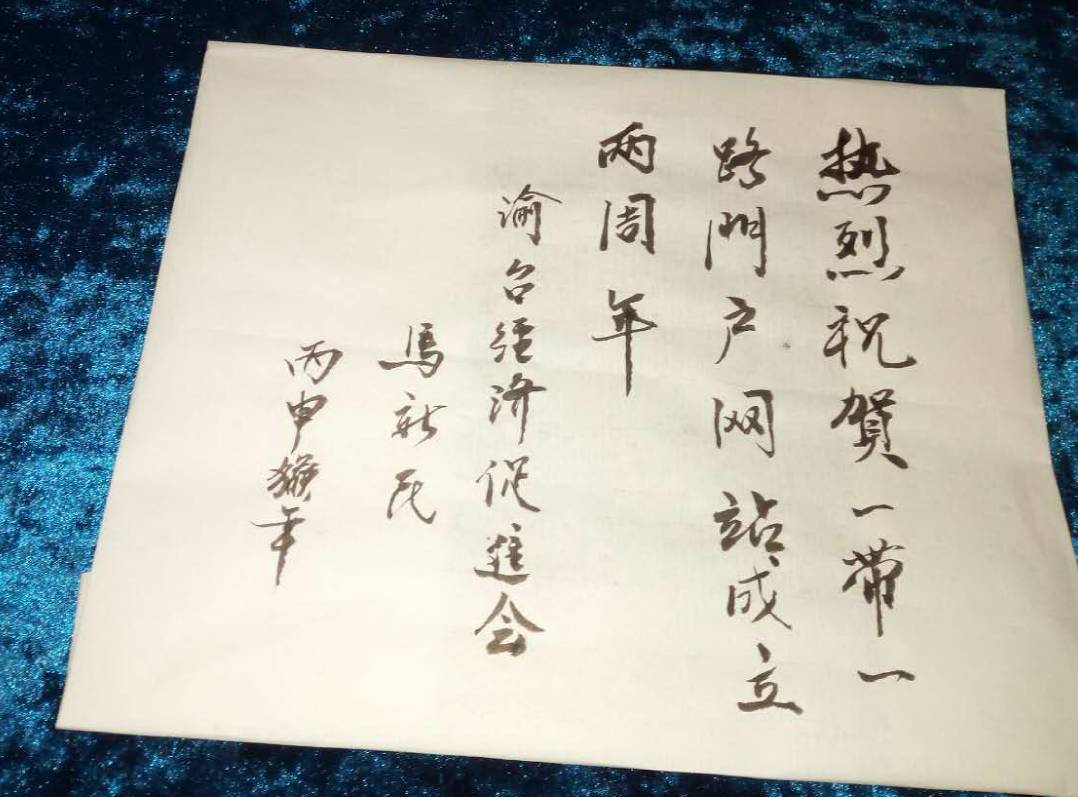 热烈祝賀一带一
路門户网站成立
两周年
渝台经济促進会
馬新民
丙申猴年